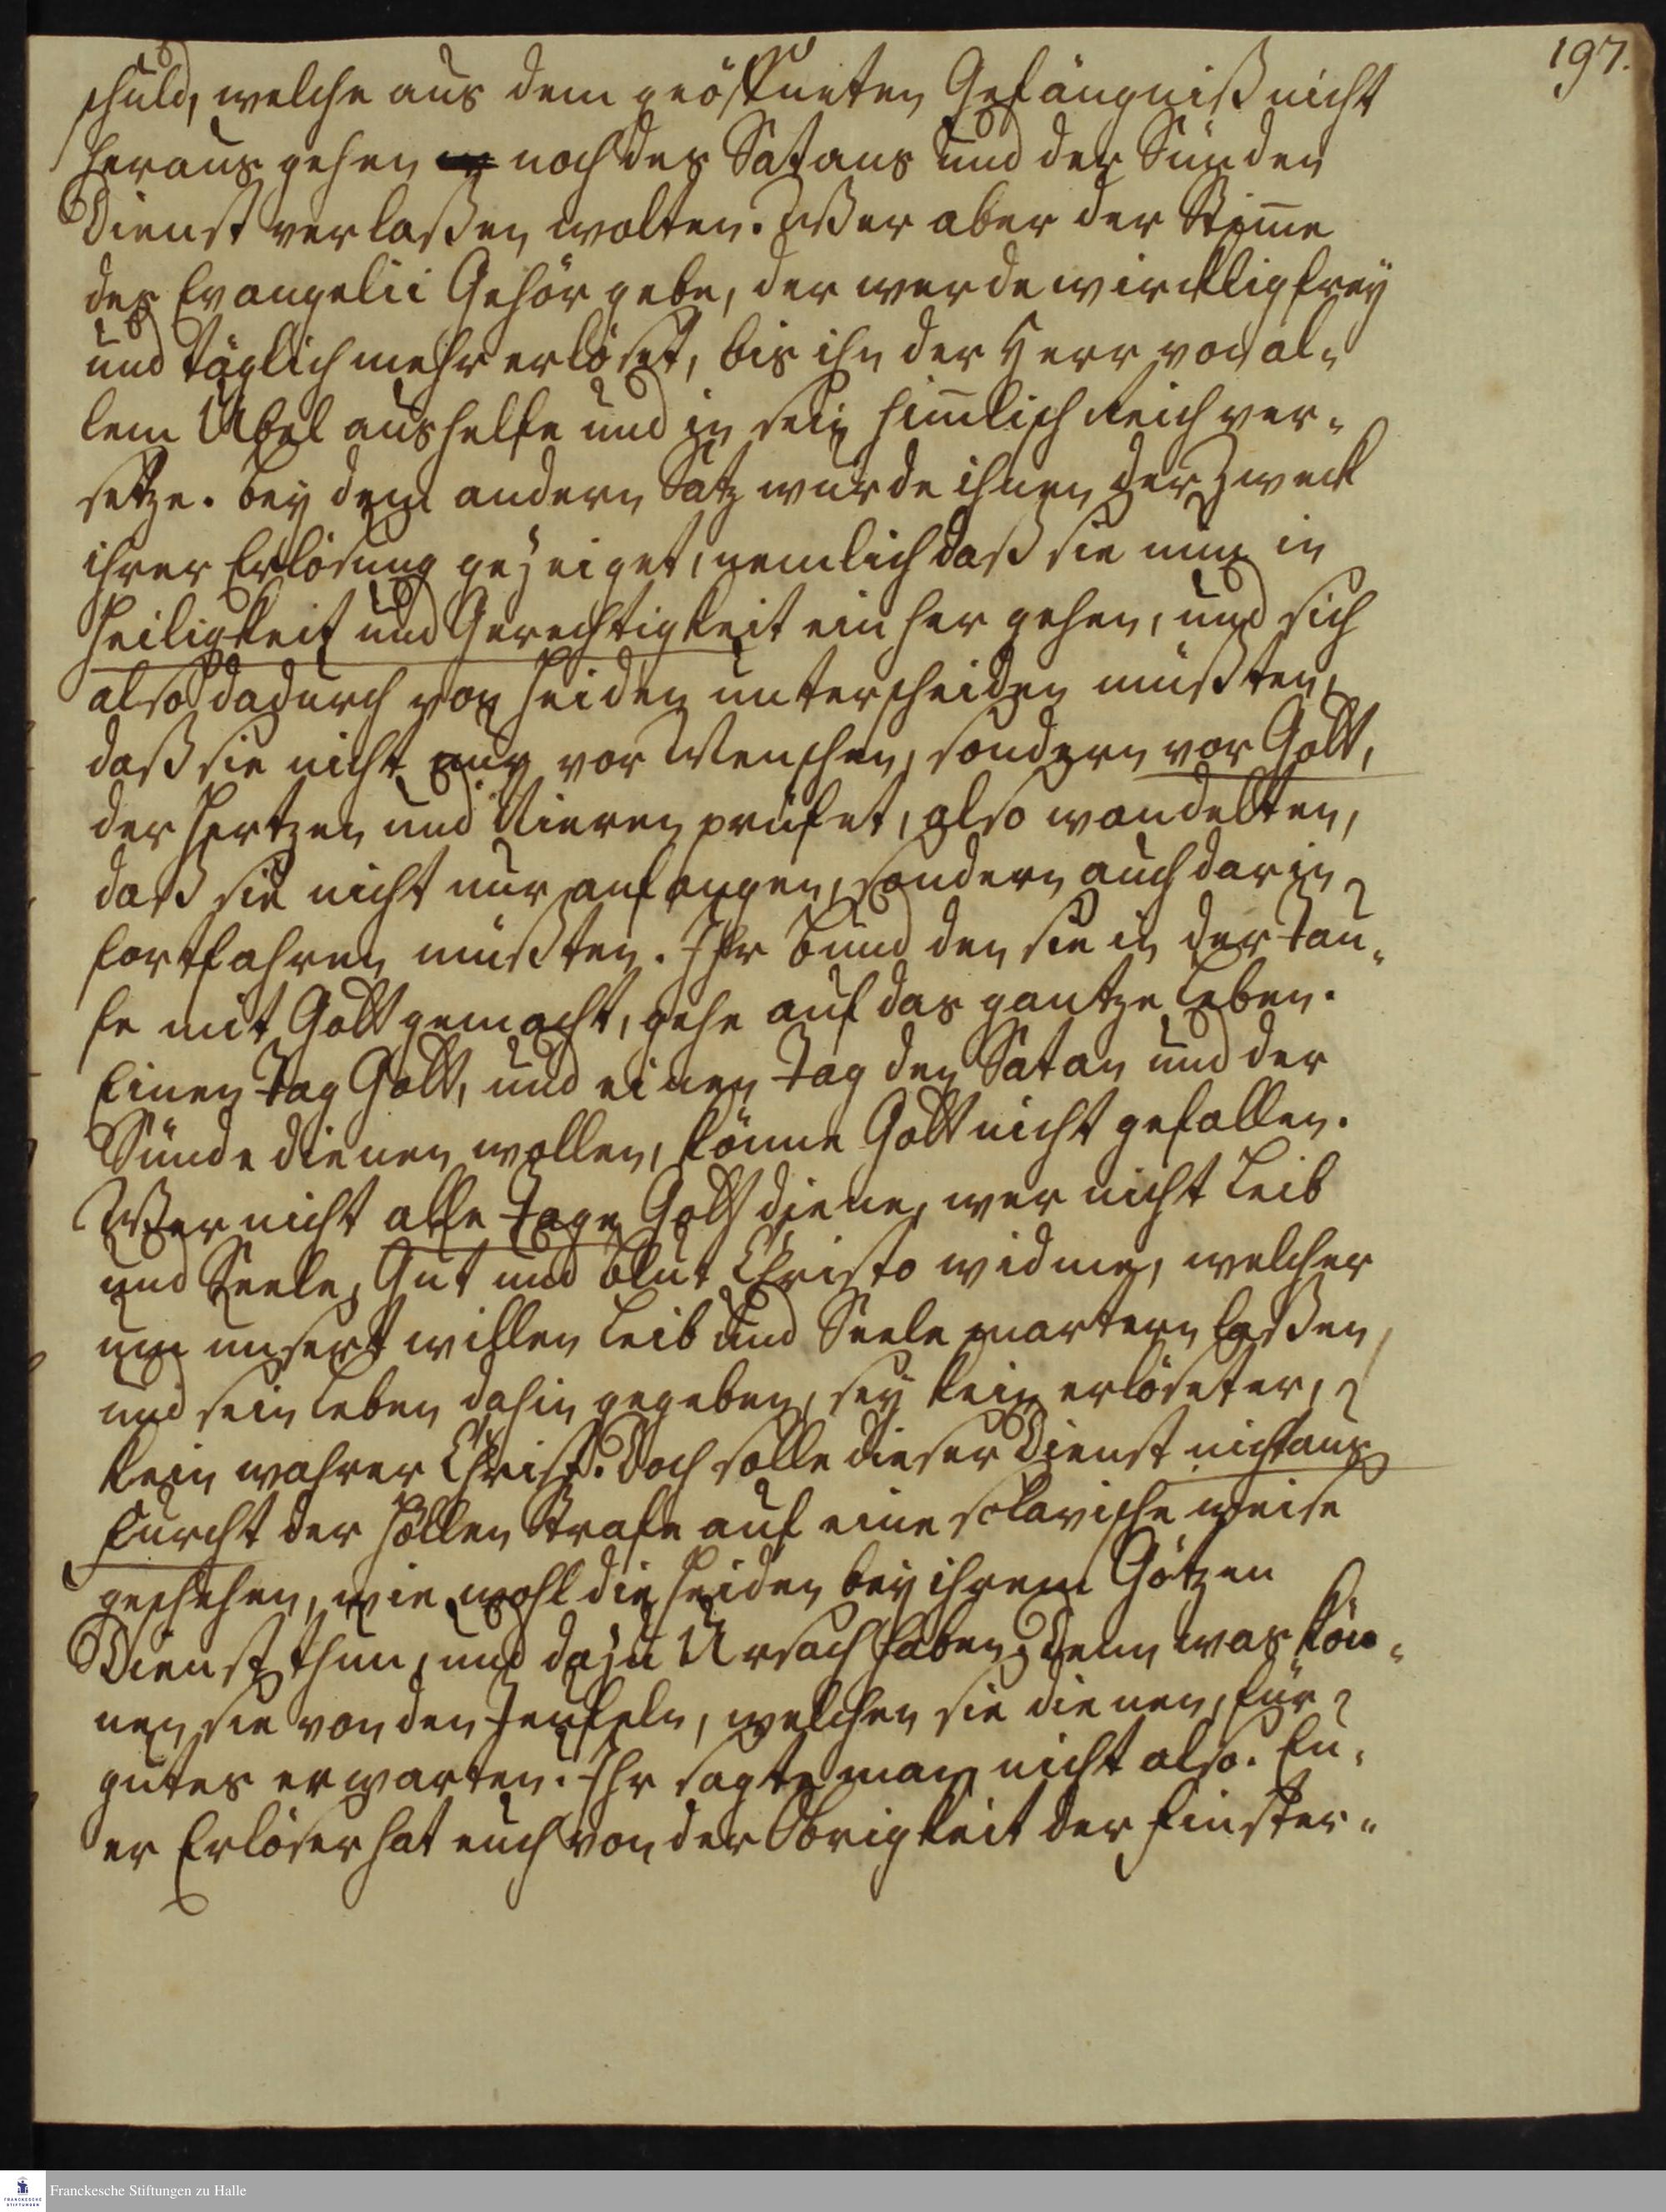 197.
schuld, welche aus dem geöffneten Gefängniß nicht
heraus gehen noch des Satans und der Sünden
Dienst verlaßen wolten. Wer aber der Stim̄e
des Evangelii Gehör gebe, der werde wircklig frey
und täglich mehr erlöset, bis ihn der Herr von al-
lem Übel aushelfe und in sein him̄lisch reich ver-
setze. Bey dem andern Satz wurde ihnen der Zweck
ihrer Erlösung gezeiget, nemlich daß sie nun in
Heiligkeit und Gerechtigkeit ein her gehen, und sich
also dadurch von Heiden unterscheiden müßten,
daß sie nicht nur vor Menschen, sondern vor Gott,
der Hertzen und Nieren prüfet, also wandelten,
daß sie nicht nur anfangen, sondern auch darin
fortfahren müßten. Ihr Bund den sie in der Tau-
fe mit Gott gemacht, gehe auf das gantze Leben.
Einen Tag Gott, und einen Tag den Satan und der
Sünde dienen wollen, könne Gott nicht gefallen.
Wer nicht alle Tage Gott diene, wer nicht Leib
und Seele, Gut und Blut Christo widme, welcher
um unsert willen Leib und Seele martern laßen,
und sein Leben dahin gegeben, sey kein erlöseter,
kein wahrer Christ. Doch solle dieser Dienst nicht aus
Furcht der Höllen Strafe auf eine sclavische weise
geschehen, wie wohl die Heiden bey ihrem Götzen
Dienst thun, und dazu Ursach haben; denn was kön-
nen sie von den Teufeln, welchen sie dienen, für
gutes erwarten. Ihr sagte man nicht also. Eu-
er Erlöser hat euch von der Obrigkeit der Finster-
Franckesche Stiftungen zu Halle
FRANCKESCHE
STIFTUNGEN